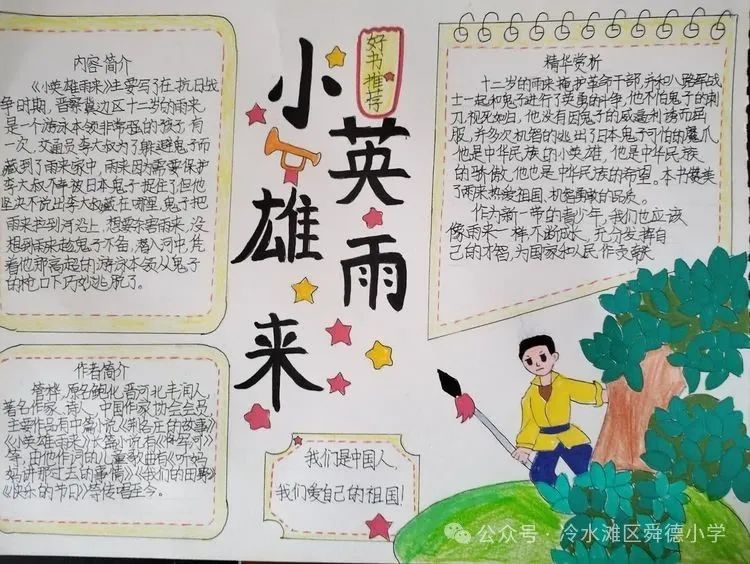 好书推荐
小英雄雨来
内容简介
《小英雄雨来》主要写了在抗日战
争时期,晋察冀边区十二岁的雨来
是一个游泳本领非常强的孩子,有
一次,交通员李大叔为了躲避鬼子而
藏到了雨来家中,雨来因为需要保护
李大叔不幸被日本鬼子捉住了,但他
坚决不说出李大叔藏在哪里,鬼子把
雨来拉到河沿上,想要杀害雨来,没
想到雨来趁鬼子不备,潜入河中,凭
着他那高超的游泳本领从鬼子
的枪口下巧妙逃脱了。
作者简介
管桦,原名鲍化普河北丰润人
著名作家、诗人,中国作家协会会员
主要作品有中篇小说《荆各庄的故事》
《小英雄雨来》长篇小说有《将军河》
等,由他作词的儿童歌曲有《听妈
妈讲那过去的事情》《我们的田野》
《快乐的节日》等传唱至今。
精华赏析
十二岁的雨来掩护革命干部,并和八路军战
士一起和鬼子进行了英勇的斗争,他不怕鬼子的刺
刀,视死如归,他没有因鬼子的威逼利诱而屈
服,并多次机智的逃出了日本鬼子可怕的魔爪
他是中华民族的小英雄,他是中华民族
的骄傲,他也是中华民族的希望。本书赞美
了雨来热爱祖国、机智勇敢的品质。
作为新一带的青少年,我们也应该
像雨来一样,不断成长,充分发挥自
己的才智,为国家和人民作贡献
我们是中国人,
我们爱自己的祖国!
公众号·冷水滩区舜德小学